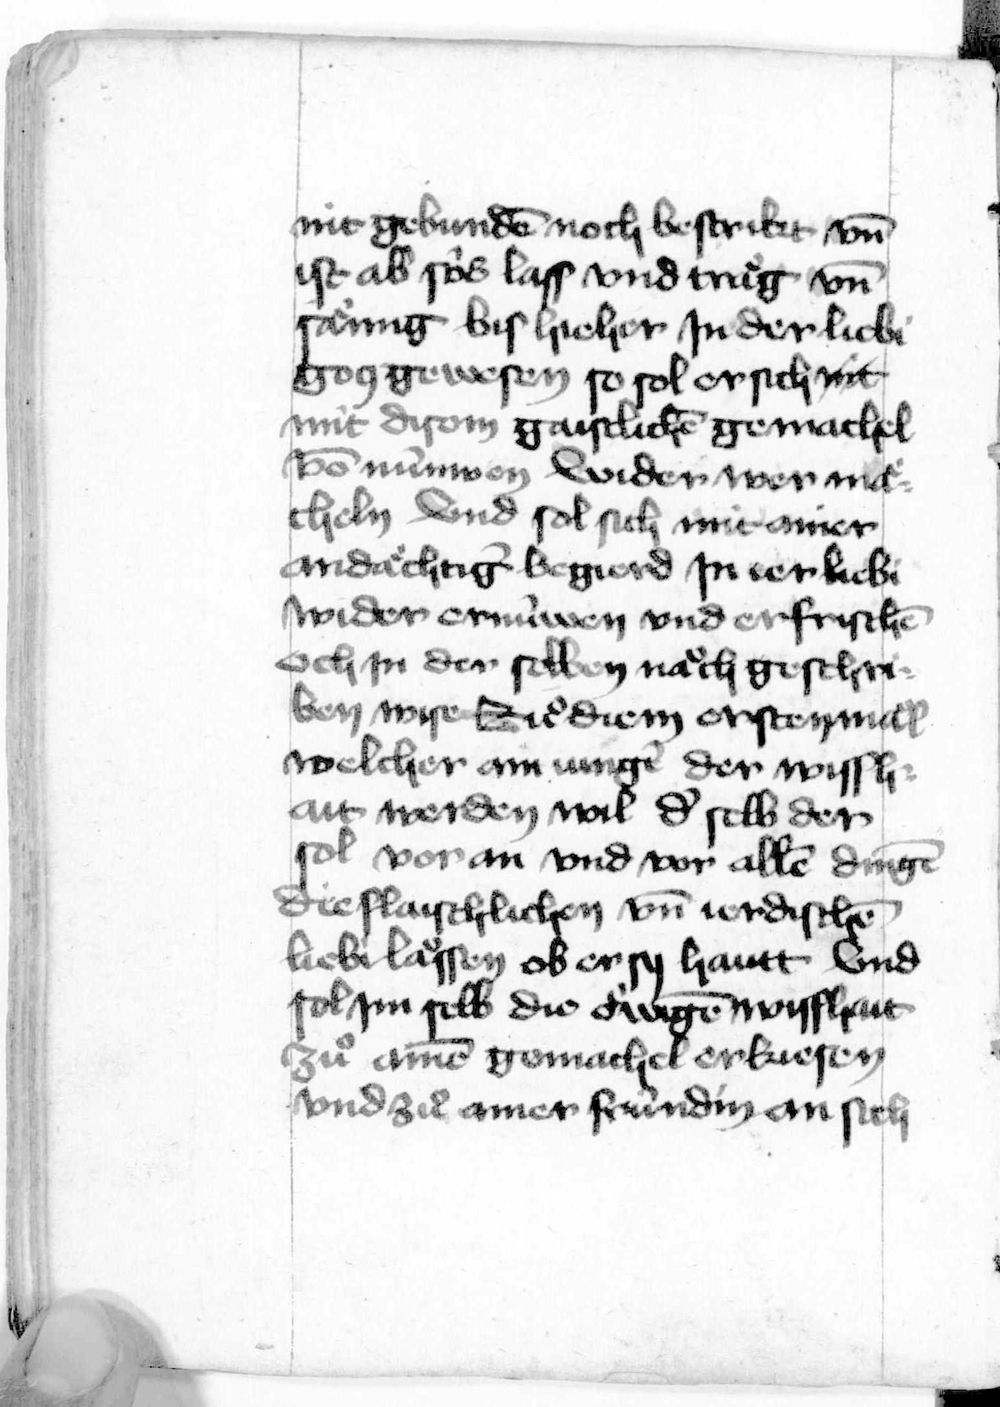 nit gebundē noch bestrikt vn̄
ist ab̄ sv̇s lass vnd traͤg vn̄
saͤmig bis hieher In der liebi
gotz gewesen so sol er sich nit
mit disem gaistlichē gemachel
vō nu̇wen Wider wer maͤ-
cheln Vnd sol sich mit ainer
andaͤchtigͬ begierd In ier liebi
wider ernu̇wen vnd erfrischē
och In der selben naͤch geschri-
ben wise Zuͦ diem ersten mal
welcher ain iungͬ der wissh-
ait werden wil dͬ selb der
sol vor an vnd vor allē dingē
die flaischlichen vn̄ ierdischē
liebi laͧssen ob er sÿ hautt Vnd
sol Im selb die eͤwigē wisshait
zuͦ ainē gemachel erkiesen
vnd zuͦ ainer fru̇ndin an sich